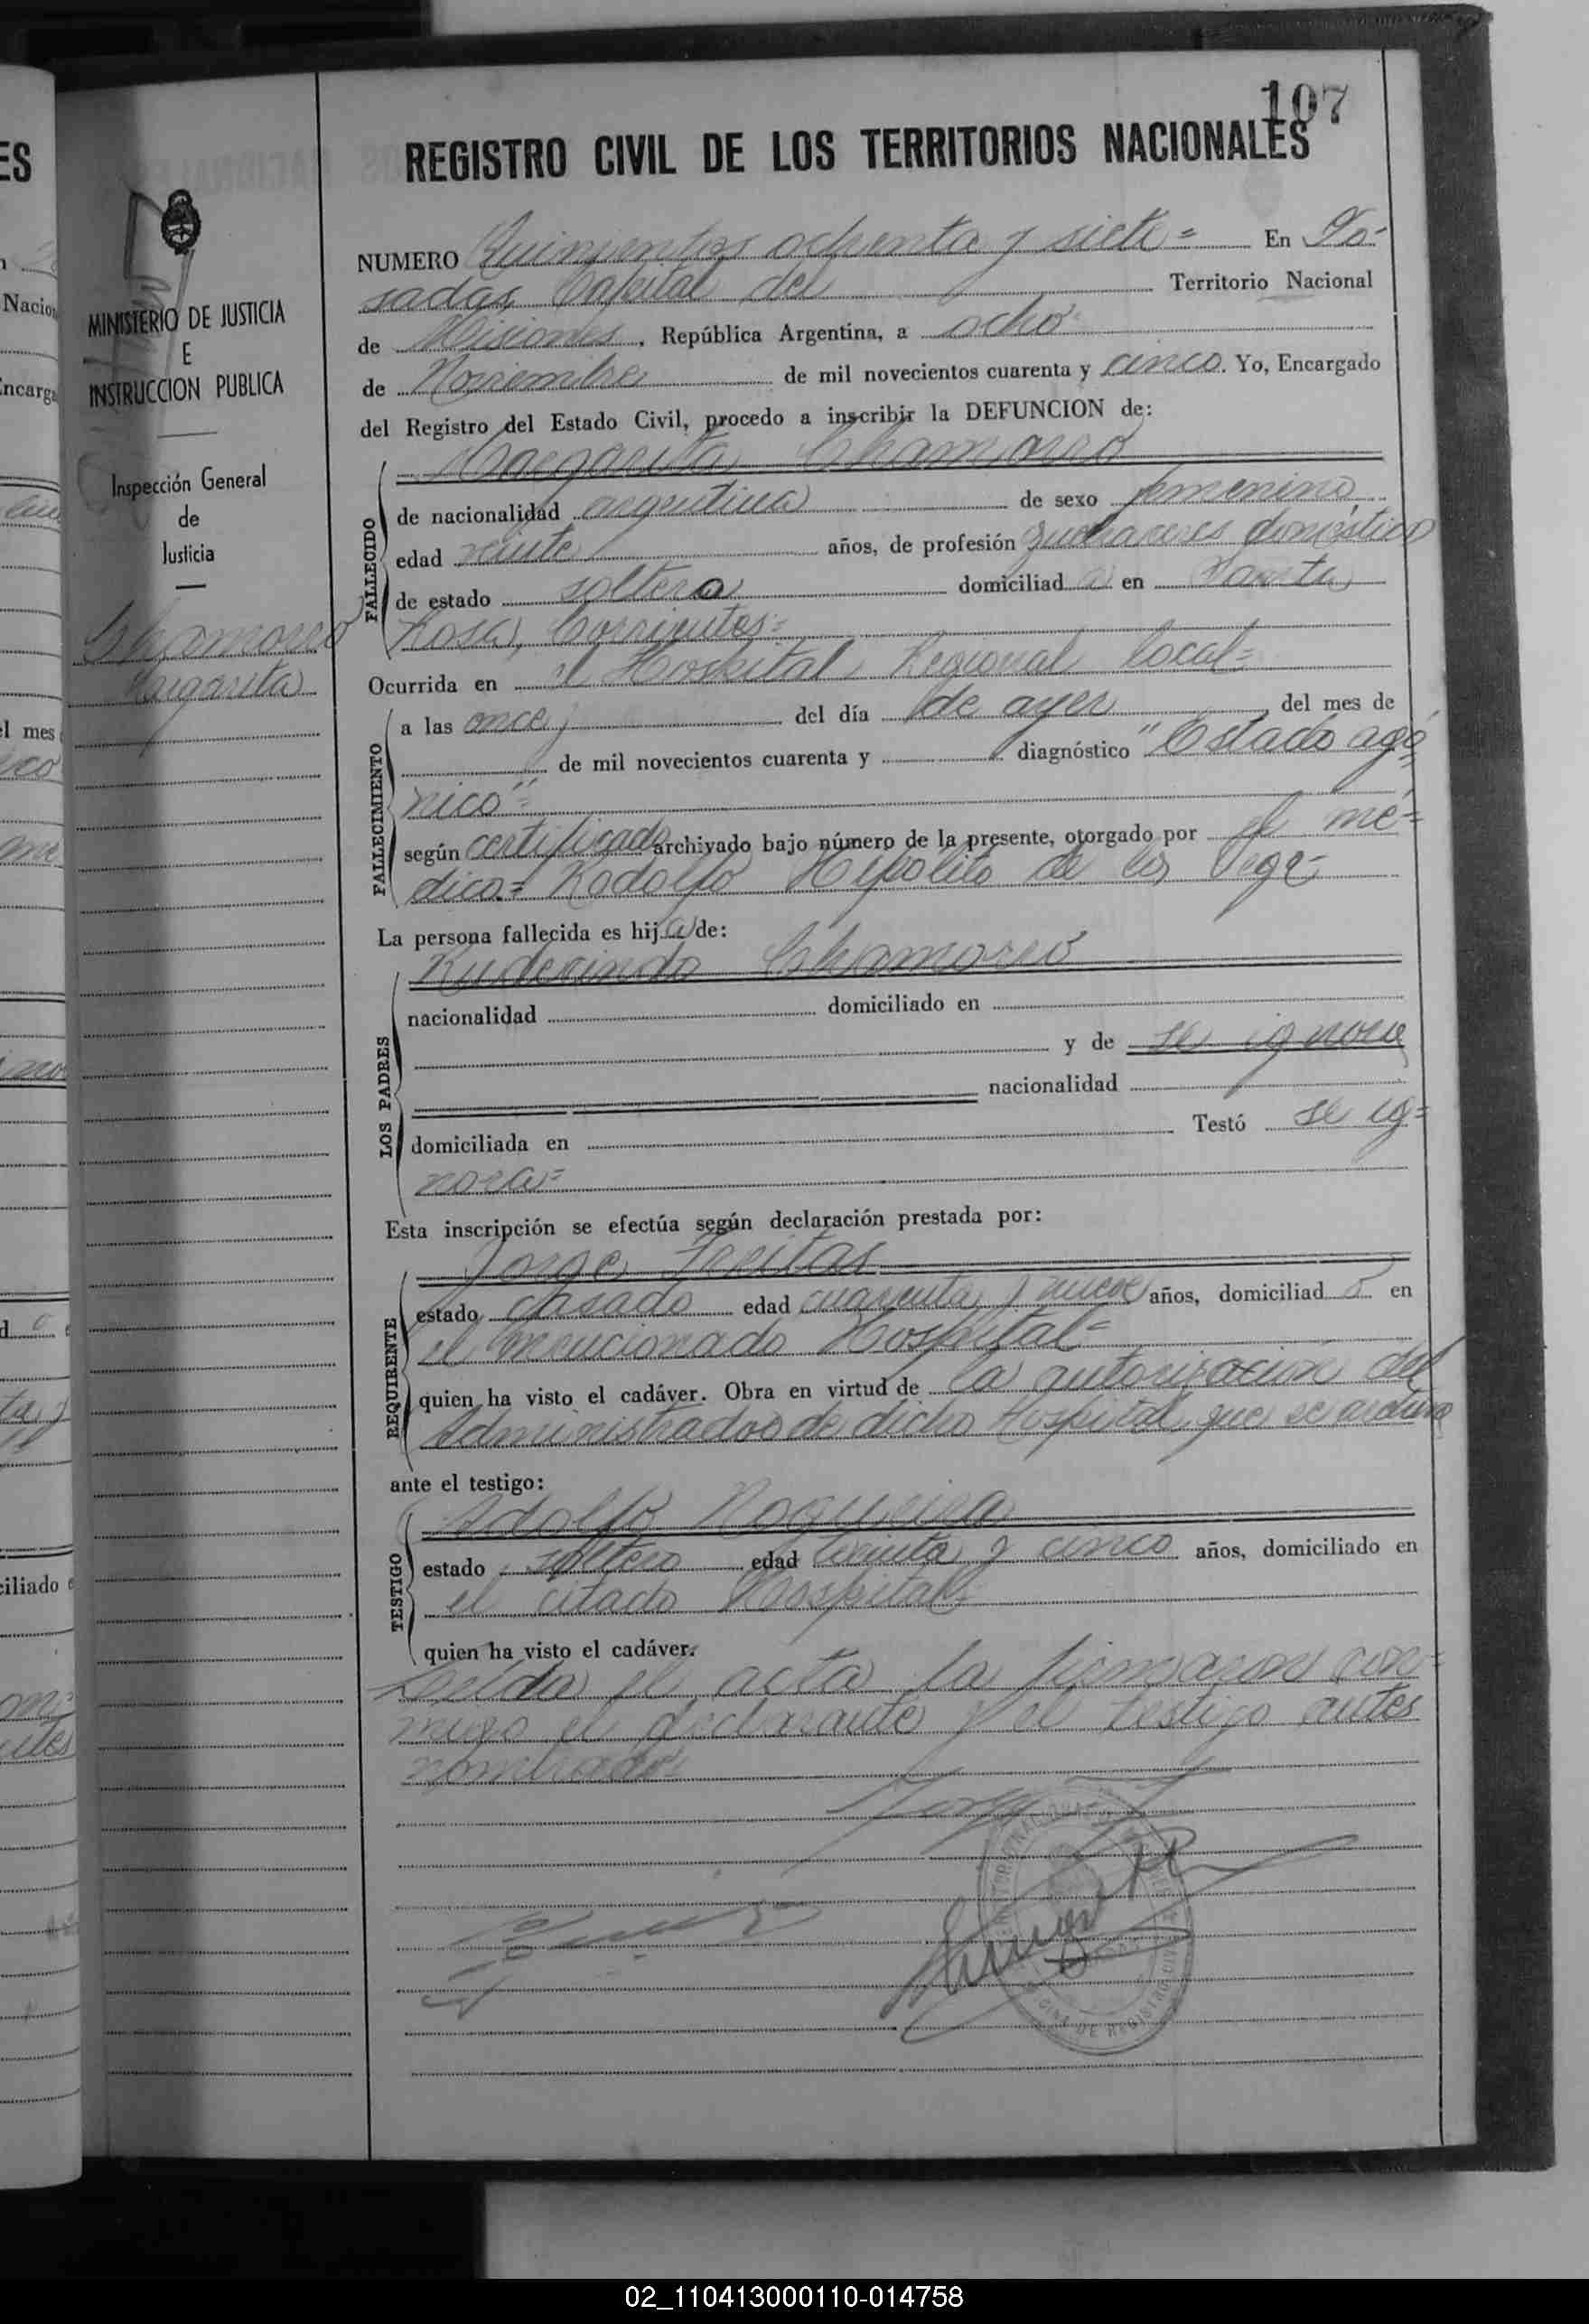 107
REGISTRO CIVIL DE LOS TERRITORIOS NACIONALES
MINISTERIO DE JUSTICIA
E
INSTRUCCION PUBLICA
Inspección General
de
Justicia
Chamorro
Margarita
NUMERO Quinientos ochenta y siete= En Po-
sadas, Capital del Territorio Nacional
de Misiones, República Argentina, a ocho
de Noviembre de mil novecientos cuarenta y cinco. Yo, Encargado
del Registro del Estado Civil, procedo a inscribir la DEFUNCION de:
Margarita Chamorro
FALLECIDO
de nacionalidad argentina de sexo femenino
edad veinte años, de profesión quehaceres domésticos
de estado soltera domiciliad a en Santa
Rosa, Corrientes=
Ocurrida en el Hospital Regional local=
FALLECIMIENTO
a las once, del día de ayer del mes de
de mil novecientos cuarenta y diagnóstico "Estado agó-
nico"=
según certificado archivado bajo número de la presente, otorgado por el mé-
dico= Rodolfo Hipolito de la Vega=
La persona fallecida es hij a de:
LOS PADRES
Ruderindo Chamorro
nacionalidad domiciliado en
y de se ignora
nacionalidad
domiciliada en Testó se ig=
nora=
Esta inscripción se efectúa según declaración prestada por:
REQUIRENTE
Jorge Freitas
estado casado edad cuarenta y nueve años, domiciliad o en
el mencionado Hospital=
quien ha visto el cadáver. Obra en virtud de la autorización del
Administrador de dicho Hospital, que se archiva
ante el testigo:
TESTIGO
Adolfo Nogueira
estado soltero edad treinta y cinco años, domiciliado en
el citado Hospital=
quien ha visto el cadáver.
Leída el acta la firmaron con=
migo el declarante y el testigo antes
nombrado
02_110413000110-014758